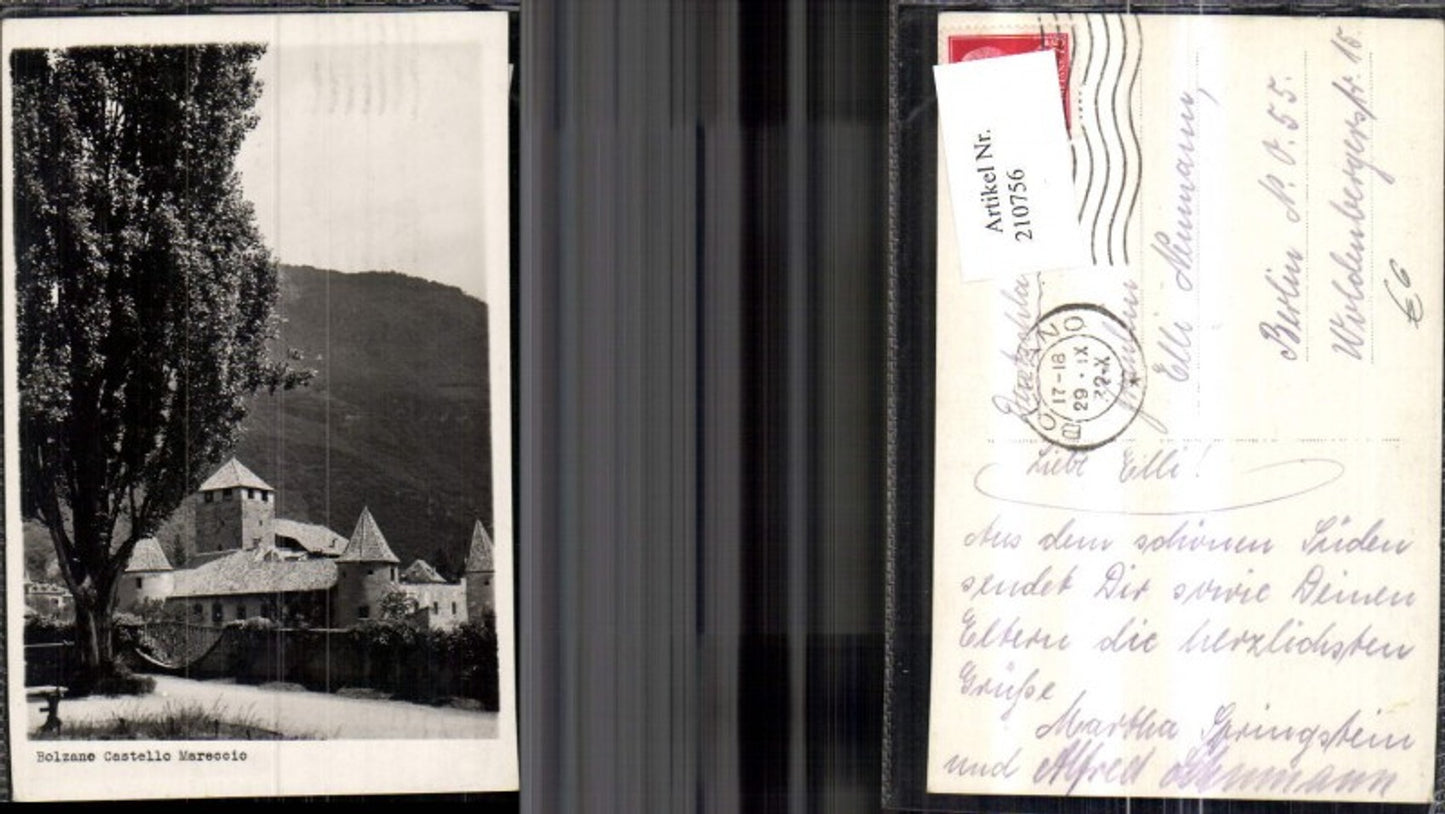 Bolzano Castello Mareccio
75
Artikel Nr.
210756
BOLZANO
17-18
29 · IX
Elli Neumann,
Berlin N. O. 55.
Woldenbergerstr. 15.
€6
Liebe Elli!
Aus dem schönen Süden
sendet Dir sowie Deinen
Eltern die herzlichsten
Grüße
Martha Springstein
und Alfred